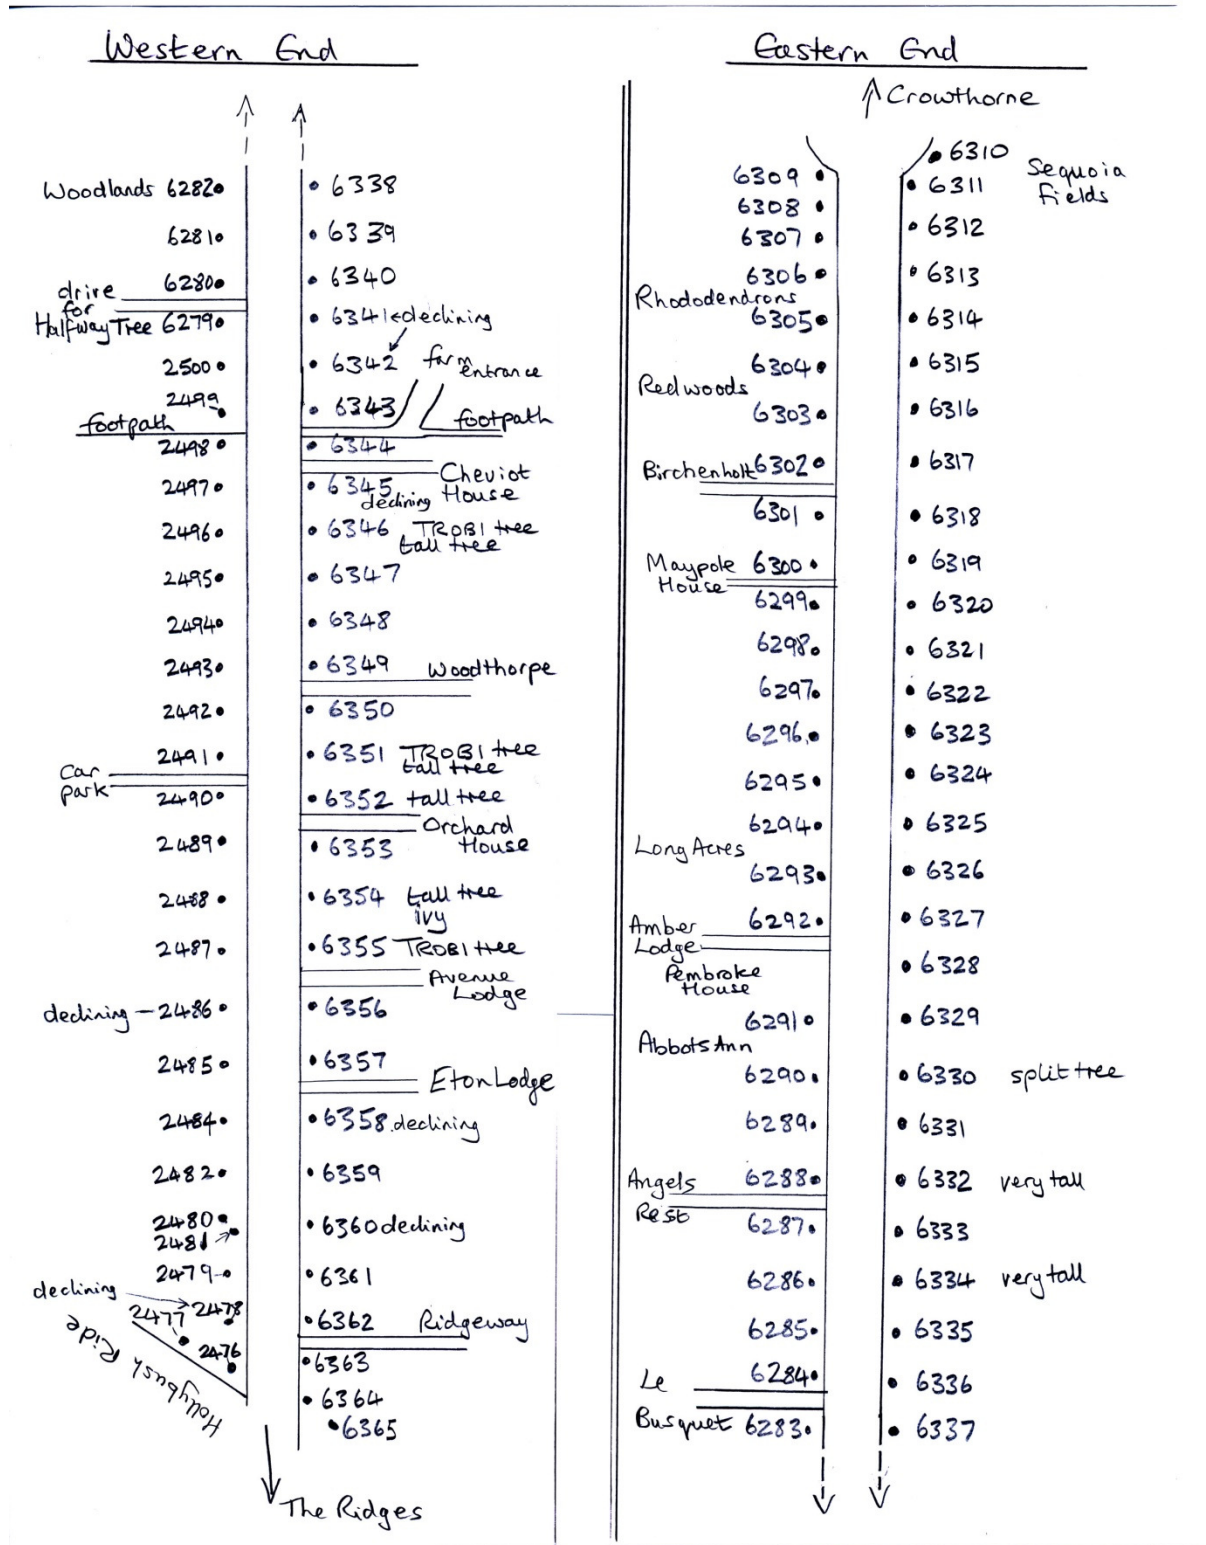 Western End
Woodlands 6282
6281
6280
drive
for
Halfway Tree 6279
2500
2499
footpath
2498
2497
2496
2495
2494
2493
2492
2491
Car
park
2490
2489
2488
2487
declining - 2486
2485
2484
2482
2480
2481
2479
declining
2478
2477
2476
Hollybush Ride
6338
6339
6340
6341 declining
6342 farm
entrance
6343
footpath
6344
Cheviot
House
6345
declining
6346 TROBI tree
tall tree
6347
6348
6349 Woodthorpe
6350
6351 TROBI tree
tall tree
6352 tall tree
Orchard
House
6353
6354 tall tree
ivy
6355 TROBI tree
Avenue
Lodge
6356
6357
Eton Lodge
6358 declining
6359
6360 declining
6361
6362 Ridgeway
6363
6364
6365
The Ridges
Eastern End
Crowthorne
6309
6308
6307
6306
Rhododendrons
6305
6304
Redwoods
6303
Birchenholt 6302
6301
Maypole 6300
House
6299
6298
6297
6296
6295
6294
Long Acres
6293
6292
Amber
Lodge
Pembroke
House
6291
Abbots Ann
6290
6289
Angels 6288
Rest
6287
6286
6285
6284
Le
Busquet 6283
6310
Sequoia
Fields
6311
6312
6313
6314
6315
6316
6317
6318
6319
6320
6321
6322
6323
6324
6325
6326
6327
6328
6329
6330 split tree
6331
6332 very tall
6333
6334 very tall
6335
6336
6337